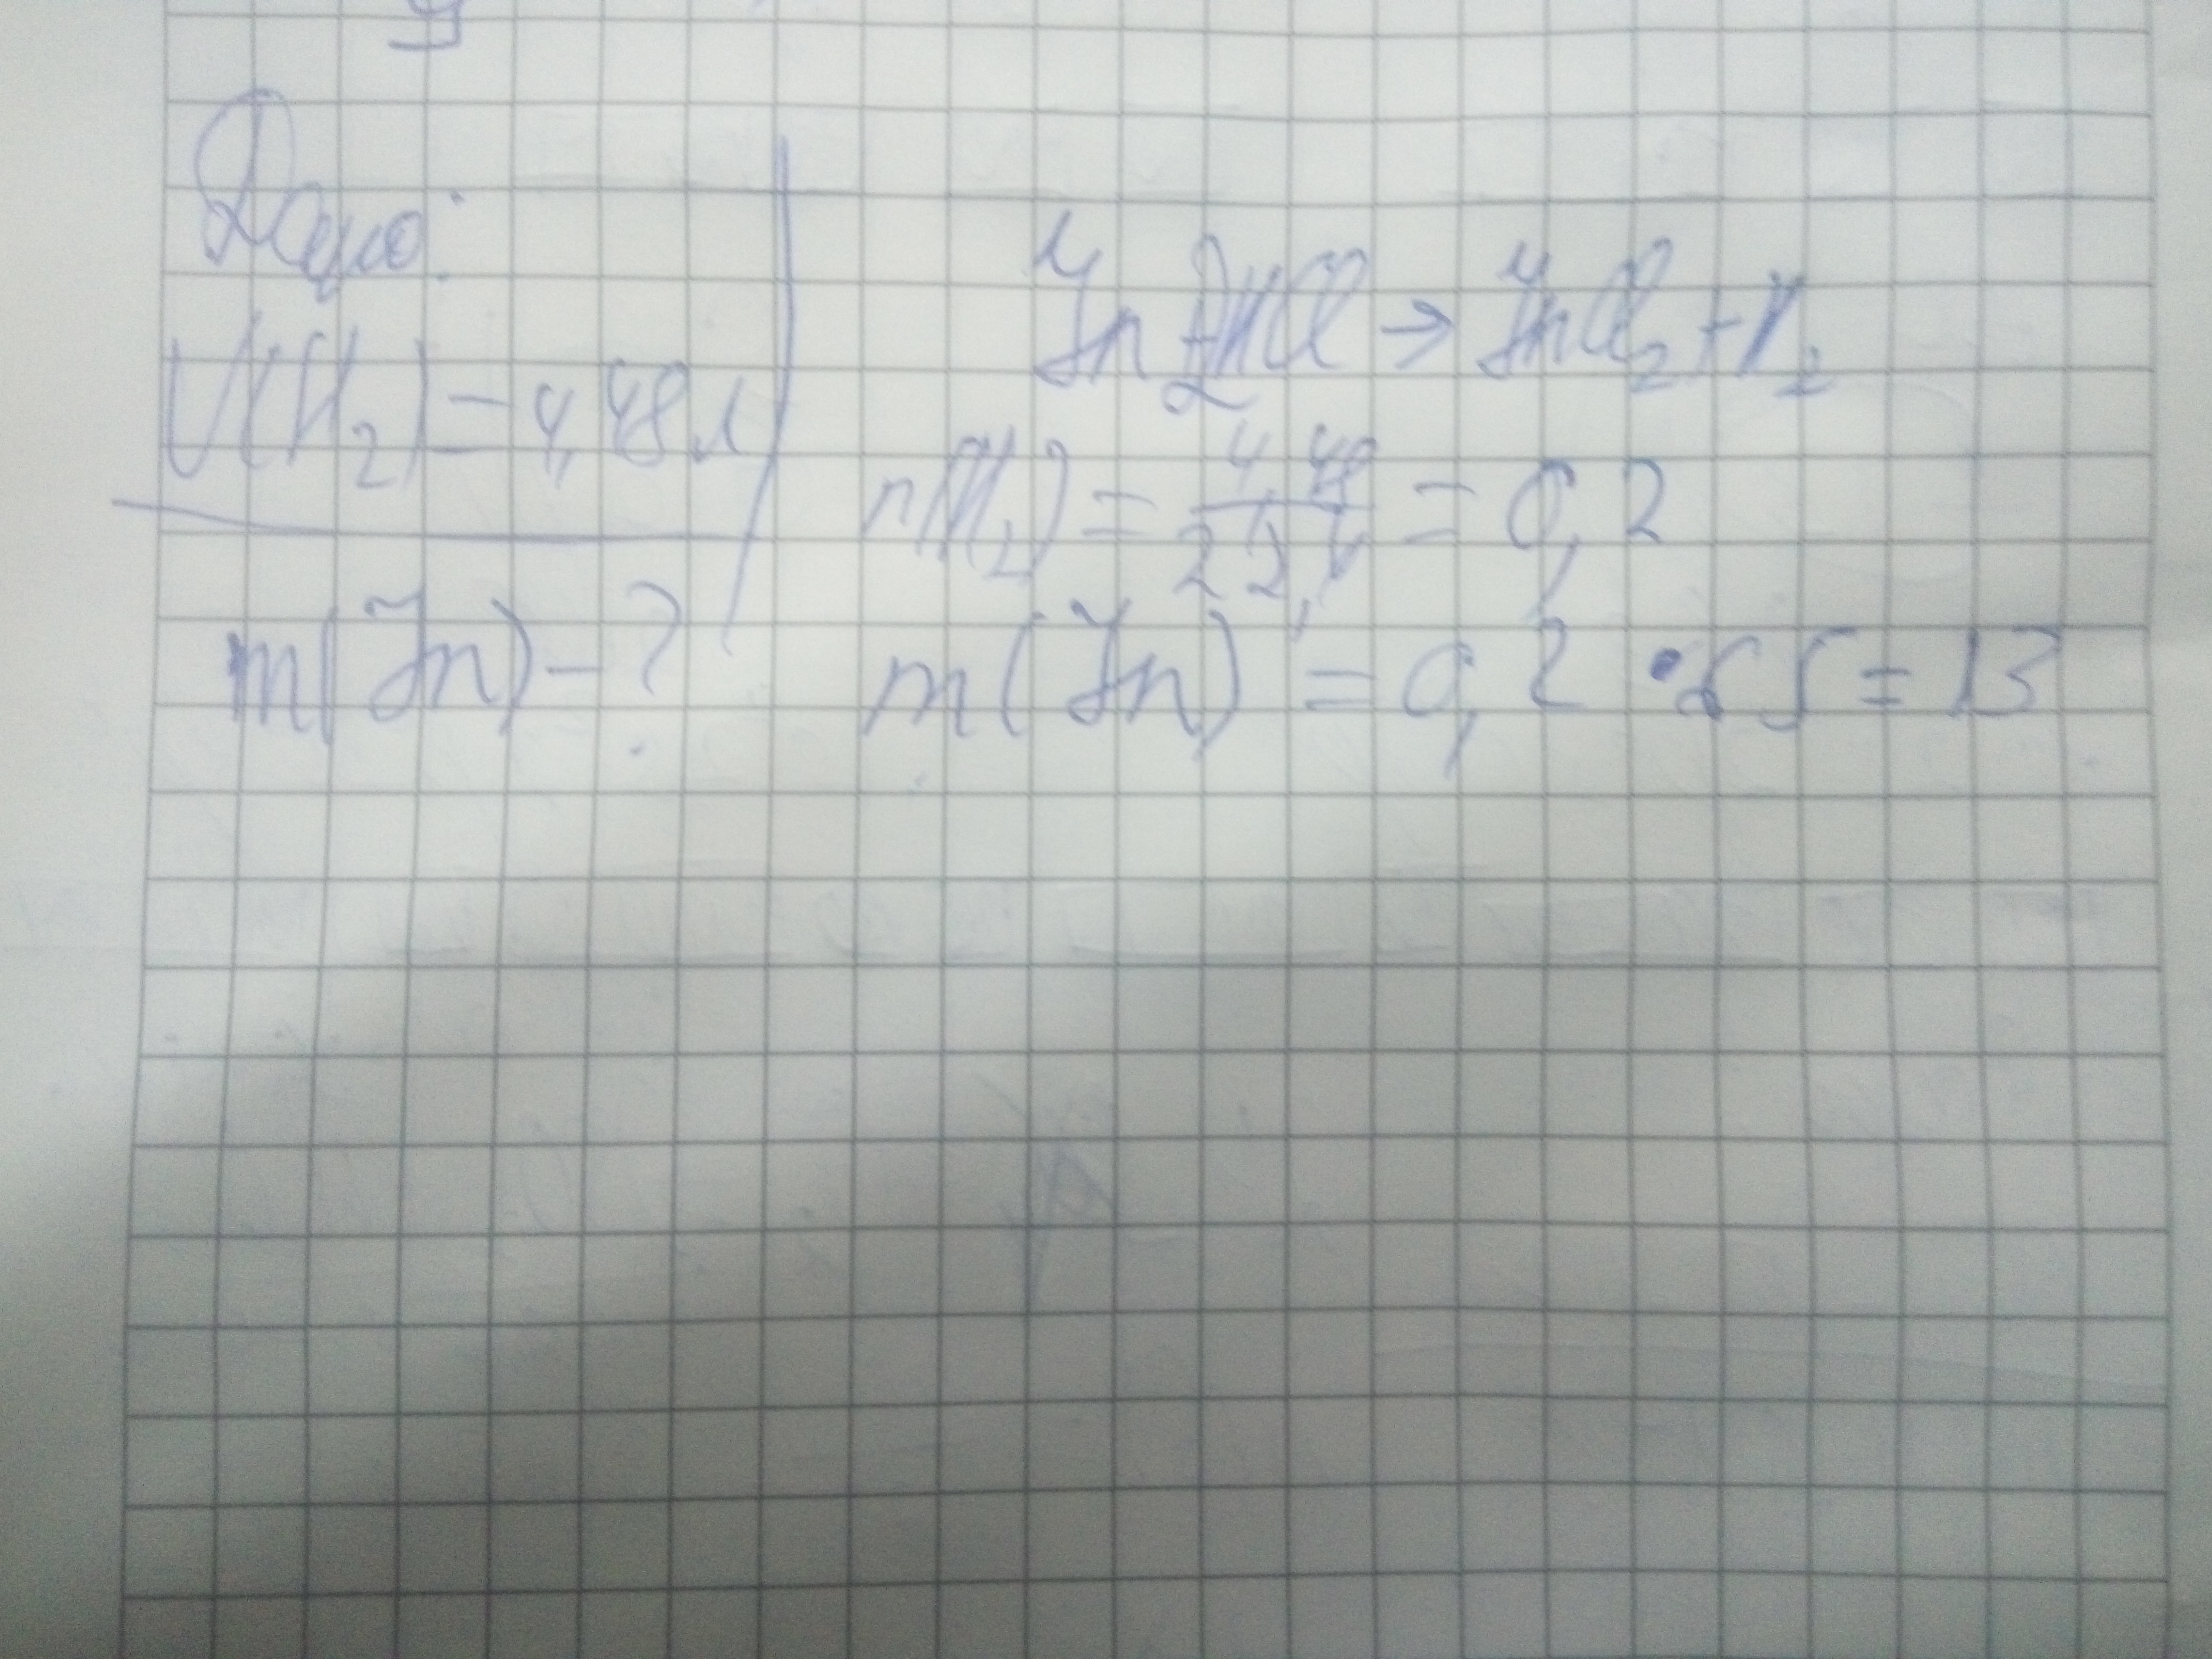 Дано:
V(H2) - 4,48 л
m(Zn) - ?
Zn + 2HCl → ZnCl2 + H2
n(H2) = 4,48 / 22,4 = 0,2
m(Zn) = 0,2 • 65 = 13